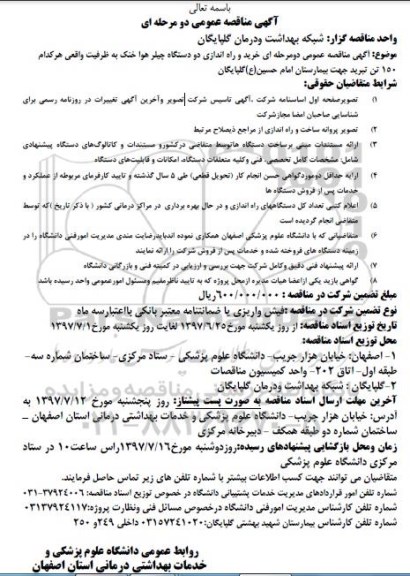 باسمه تعالی
آگهی مناقصه عمومی دو مرحله ای
واحد مناقصه گزار: شبکه بهداشت ودرمان گلپایگان
موضوع: آگهی مناقصه عمومی دومرحله ای خرید و راه اندازی دو دستگاه چیلر هوا خنک به ظرفیت واقعی هرکدام
۱۵۰ تن تبرید جهت بیمارستان امام حسین(ع)گلپایگان
شرایط متقاضیان حقوقی:
۱) تصویرصفحه اول اساسنامه شرکت ،آگهی تاسیس شرکت ،تصویر وآخرین آگهی تغییرات در روزنامه رسمی برای
شناسایی صاحبان امضا مجازشرکت
۲) تصویر پروانه ساخت و راه اندازی از مراجع ذیصلاح مرتبط
۳) ارائه مستندات مبنی برساخت دستگاه هاتوسط متقاضی درکشورو مستندات و کاتالوگ‌های دستگاه پیشنهادی
شامل: مشخصات کامل تخصصی، فنی وکلیه متعلقات دستگاه، امکانات و قابلیت‌های دستگاه
۴) ارایه حداقل دوموردگواهی حسن انجام کار (تحویل قطعی) طی ۵ سال گذشته و تایید کارفرمای مربوطه از عملکرد و
خدمات پس از فروش دستگاه ها
۵) اعلام کتبی تعداد کل دستگاههای راه اندازی و در حال بهره برداری در مراکز درمانی کشور ( با ذکر تاریخ )که توسط
متقاضی انجام گردیده است
۶) متقاضیانی که با دانشگاه علوم پزشکی اصفهان همکاری نموده اندبایدرضایت مندی مدیریت امورفنی دانشگاه را در
زمینه دستگاه های فروخته شده و خدمات پس از فروش شرکت را ارائه نمایند
۷) ارائه پیشنهاد فنی دقیق وکامل شرکت جهت بررسی و ارزیابی در کمیته فنی و بازرگانی دانشگاه
۸) گواهی بازدید یکی ازاعضا هیات مدیره ازمحل پروژه که به تایید ناظرمقیم ومسئول امورعمومی واحد رسیده باشد
مبلغ تضمین شرکت در مناقصه : ۶۰۰/۰۰۰/۰۰۰ریال
نوع تضمین شرکت در مناقصه :فیش واریزی یا ضمانتنامه معتبر بانکی بااعتبارسه ماه
تاریخ توزیع اسناد مناقصه: از روز یکشنبه مورخ۱۳۹۷/۶/۲۵ لغایت روز یکشنبه مورخ۱۳۹۷/۷/۱
محل توزیع اسناد مناقصه:
۱- اصفهان: خیابان هزار جریب- دانشگاه علوم پزشکی - ستاد مرکزی - ساختمان شماره سه-
طبقه اول- اتاق ۲۰۲- واحد کمیسیون مناقصات
۲- گلپایگان : شبکه بهداشت ودرمان گلپایگان
آخرین مهلت ارسال اسناد مناقصه به صورت پست پیشتاز: روز پنجشنبه مورخ ۱۳۹۷/۷/۱۲ به
آدرس: خیابان هزار جریب- دانشگاه علوم پزشکی و خدمات بهداشتی درمانی استان اصفهان –
ساختمان شماره دو طبقه همکف - دبیرخانه مرکزی
زمان ومحل بازگشایی پیشنهادهای رسیده:روزدوشنبه مورخ۱۳۹۷/۷/۱۶راس ساعت۱۰ در ستاد
مرکزی دانشگاه علوم پزشکی
متقاضیان می توانند جهت کسب اطلاعات بیشتر با شماره تلفن های زیر تماس حاصل فرمایند.
شماره تلفن امور قراردادهای مدیریت خدمات پشتیبانی دانشگاه در خصوص توزیع اسناد مناقصه: ۳۷۹۲۴۰۰۶-۰۳۱
شماره تلفن کارشناس مدیریت امورفنی دانشگاه درخصوص مسائل فنی ونظارت پروژه:۰۳۱۳۷۹۲۴۱۱۷
شماره تلفن کارشناس بیمارستان شهید بهشتی گلپایگان: ۰۳۱۵۷۲۴۱۰۲۰ داخلی ۲۴۹و ۲۵۰
روابط عمومی دانشگاه علوم پزشکی و
خدمات بهداشتی درمانی استان اصفهان